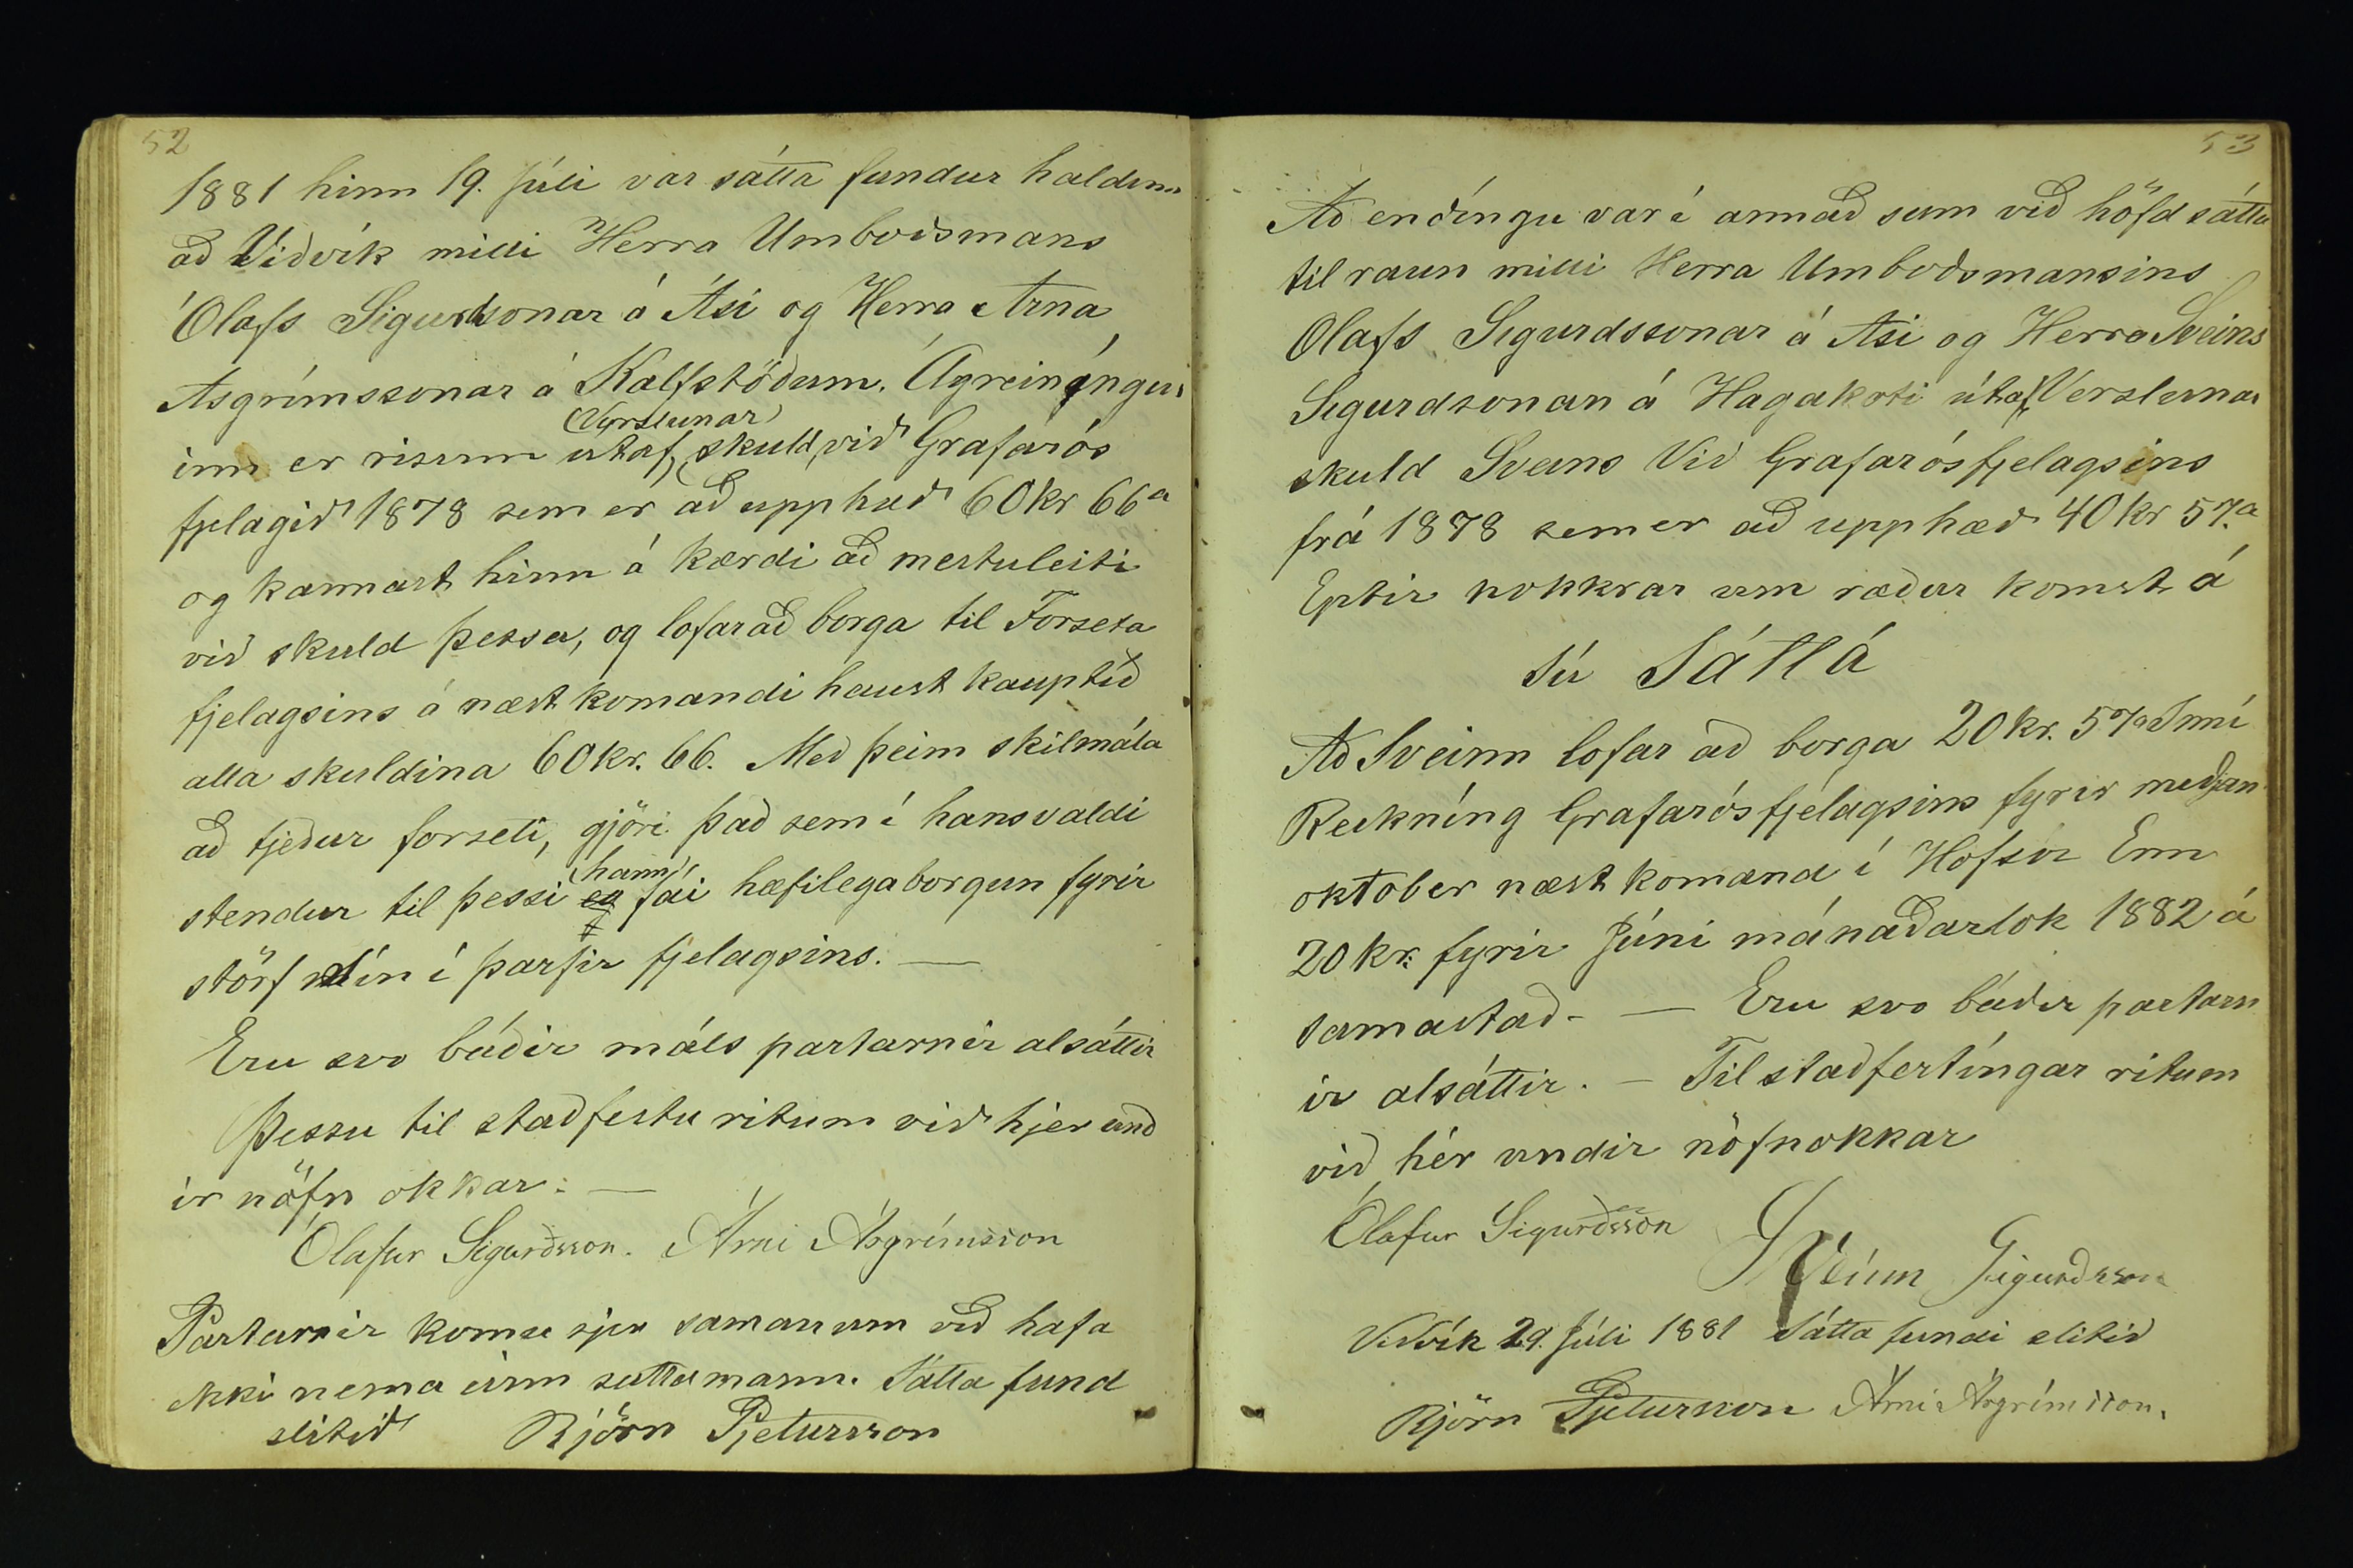 52
1881 hinn 19. Júli var sátta fundur haldinn
að Viðvík milli Herra Umboðsmans
Ólafs Sigurdsonar á Ási og Herra Arna
Asgrímssonar á Kalfstöðum. Ágreiníngur
inn er risinn útaf (Verslunar) skuld, við Grafarós
fjelagið 1878 sem er að upphæð 60 kr 66 a
og kannast hinn á kærdi að mestuleiti
við skuld þessa, og lofar að borga til Forseta
fjelagsins á næst komandi haust kauptíð
alla skuldina 60 kr. 66. Með þeim skilmála
að tjeður forseti, gjöri það sem í hans valdi
stendur til þessi eg (hann) fái hæfilega borgun fyrir
störf sín í þarfir fjelagsins. —
Eru svo báðir máls partarnir alsáttir
Þessu til staðfestu ritum við hjer und
ir nöfn okkar. —
Ólafur Sigurðsson. Árni Ásgrímsson
Partarnir komu sjer saman um að hafa
ekki nema einn sattamann. Sátta fund
slitið Björn Pjetursson
53
Að endíngu var í annað sum við höfd sátta
til raun milli Herra Umboðsmansins
Olafs Sigurdssonar á Asi og Herra Sveins
Sigurdsonar á Hagakoti útaf Verslunar
skuld Sveins Við Grafarósfjelagsins
frá 1878 sem er að upphæð 40 kr 57. a
Eptir nokkrar um ræður komst á
sú Sátt á
Að Sveinn lofar að borga 20 kr. 57 a Inní
Reikníng Grafarósfjélagsins fyrir miðjan
október næst komand í Hofsós Enn
20 kr: fyrir Júni mánaðarlok 1882 á
samastað - — Eru svo báðir partarn
ir alsáttir. — Til staðfestíngar ritum
við hér undir nöfn okkar
Ólafur Sigurðsson
Sveinn Sigurðsson
Viðvík 29. Júli 1881 Sátta fundi slitið
Björn Pjetursson Árni Ásgrímsson.